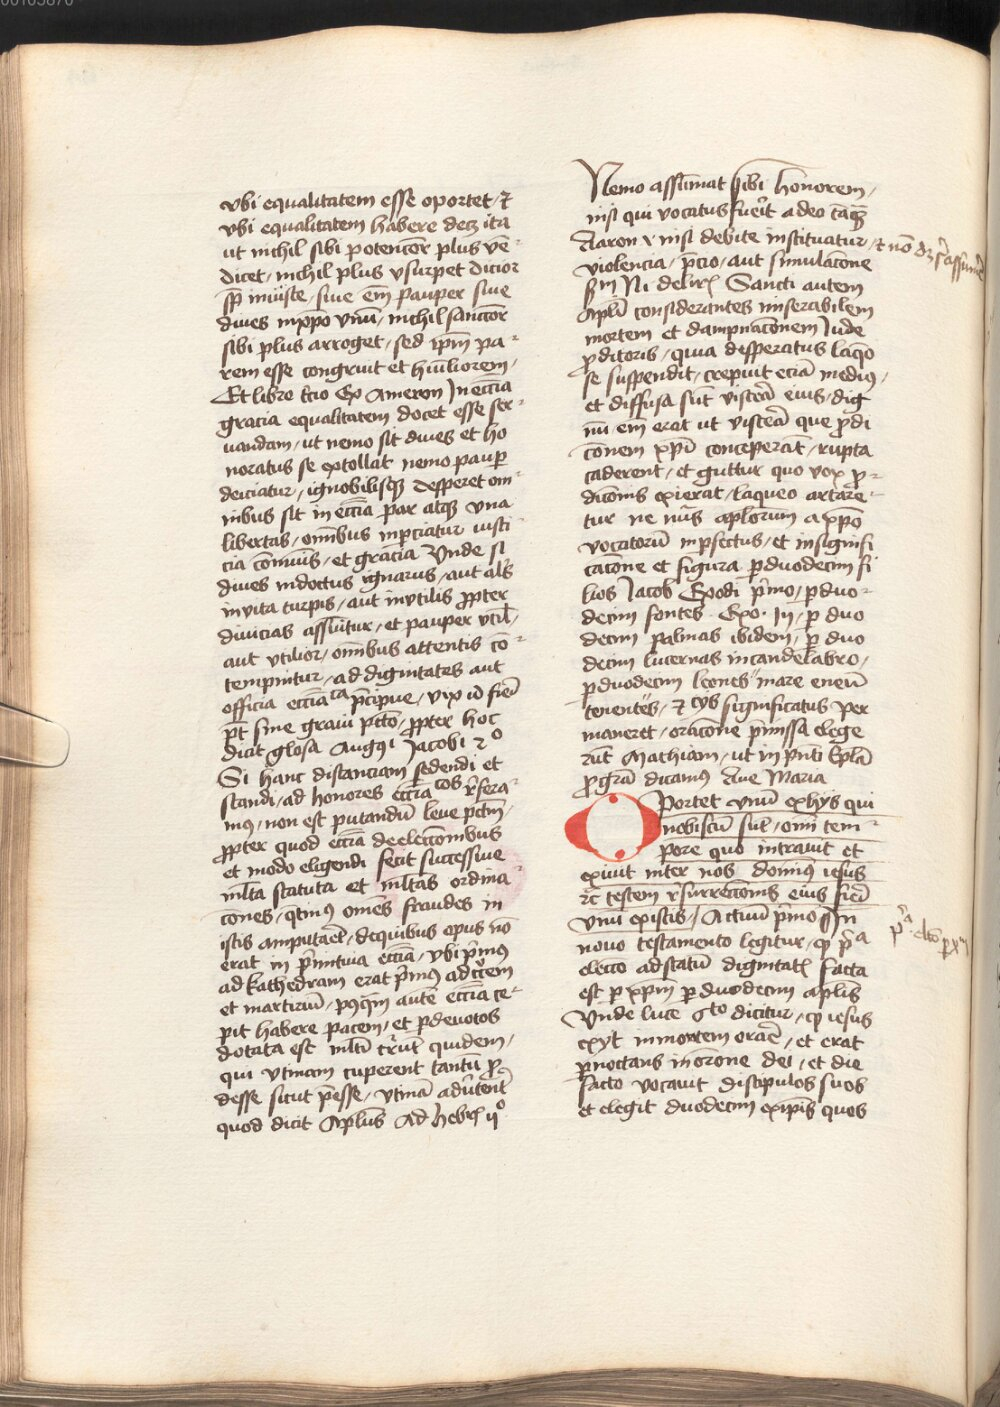 vbi equalitatem esse oportet, ⁊
vbi equalitatem habere decꝫ ita
ut nichil sibi potencior plus ven-
dicet, nichil plus vsurpet dicior
sp̄ iniuste, siue em̄ pauper siue
diues in xp̄o vnū, nichil sanctior
sibi plus arroget, sed ip̄m pa-
rem esse congruit et huiliorem,
Et libro t̄cio Ex Ameron In ecc̄ia
gracia equalitatem docet esse ser-
uandam, ut nemo sit diues et ho
noratus se extollat nemo paup̄
deiciatur, ignobilisqꝫ desperet om-
nibus sit in ecc̄ia par atqꝫ vna
libertas, om̄ibus inp̄ciatur iusti
cia com̄unis, et gracia Vnde si
diues indoctus ignarus, aut al's
in vita turpis, aut inutilis ꝓpter
diuicias assūitur, et pauper vtil,
aut vtilior, om̄ibus attentis cō-
tempnitur, ad dignitates aut
officia ecc̄iatica p̄cipue, vix id fieri
pt̄ sine graui pcc̄to, ꝓpter hoc
dicit glosa Augꝯi Jacobi 2o
Si hanc distanciam sedendi et
standi, ad honores ecc̄iacos r̄fera-
mꝯ, non est putandū leue pctm̄,
ꝓpter quod ecc̄ia de elecc̄onibus
et modo eligendi fecit successiue
ml̄ta statuta et ml̄tas ordina-
cones, qtinꝯ om̄es fraudes in
istis amputaret, de quibus opus nō
erat in p̄mitiua ecc̄ia, vbi p̄mꝯ
ad kathedram erat p̄mꝯ ad
et martiriū, pꝰqꝫ aute ecc̄ia ce-
pit habere pacem, et p̄ deuotos
dotata est ml̄ti quidem,
qui vtinam cuperent tantū ꝓ-
desse sicut p̄esse, vtinā
quod dicit Ap̄lus Ad hebr̄ vo
Nemo assumat sibi honorem,
nisi qui vocatus fuerit a deo tāqꝫ
Aaron v nisi debite instituatur, ⁊ nō dꝫ assumere
violencia, p̄cio, aut simulac̄one
sm̄ Ni de lir̄ Sancti autem
Ap̄li considerantes miserabilem
mortem et dampnac̄onem Iude
ꝓditoris, quia desperatus laq̄o
se suspendit, crepuit eciā medius,
et diffusa sūt viscera eius, dig
nū em̄ erat ut viscera que ꝓdi
c̄onem xp̄i conceperāt, rupta
caderent, et guttur quo vox ꝓ-
dic̄onis exierat, laqueo artare-
tur ne nūs ap̄lorum a xp̄o
vocatorū inp̄fectus, et insignifi
cac̄one et figura p̄ duodecim fi
lios Jacob Exodi p̄mo, p̄ duo-
decim fontes Exo. , p̄ duo
decim palmas ibidem, p̄ duo
decim lucernas in candelabro,
p̄ duodecim leones "mare eneū
tenentes", ⁊ significatus per
maneret, orac̄one p̄missa elege
rūt Mathiam, ut in p̄nti Ep̄la
ꝓ grā dicamꝯ Aue Maria
Oportet vnū ex hys qui
nobiscū sūt, om̄i tem-
pore quo intrauit et
exiuit inter nos dominꝯ iesus
⁊c testem r̄surrecc̄onis eius fieri
vnū ex istis, Actuū p̄mo In p̄a elc̄o p̄ xm
nouo testamento legitur, qꝫ p̄a
elecc̄o ad statū dignitat̄ facta
est p̄ xp̄m p̄ duodecim ap̄lis
Vnde luce 6to dicitur, qꝫ iesus
exyt in montem orare, et erat
p̄noctans in or̄one dei, et die
facto vocauit discipulos suos
et elegit duodecim ex ip̄is quos